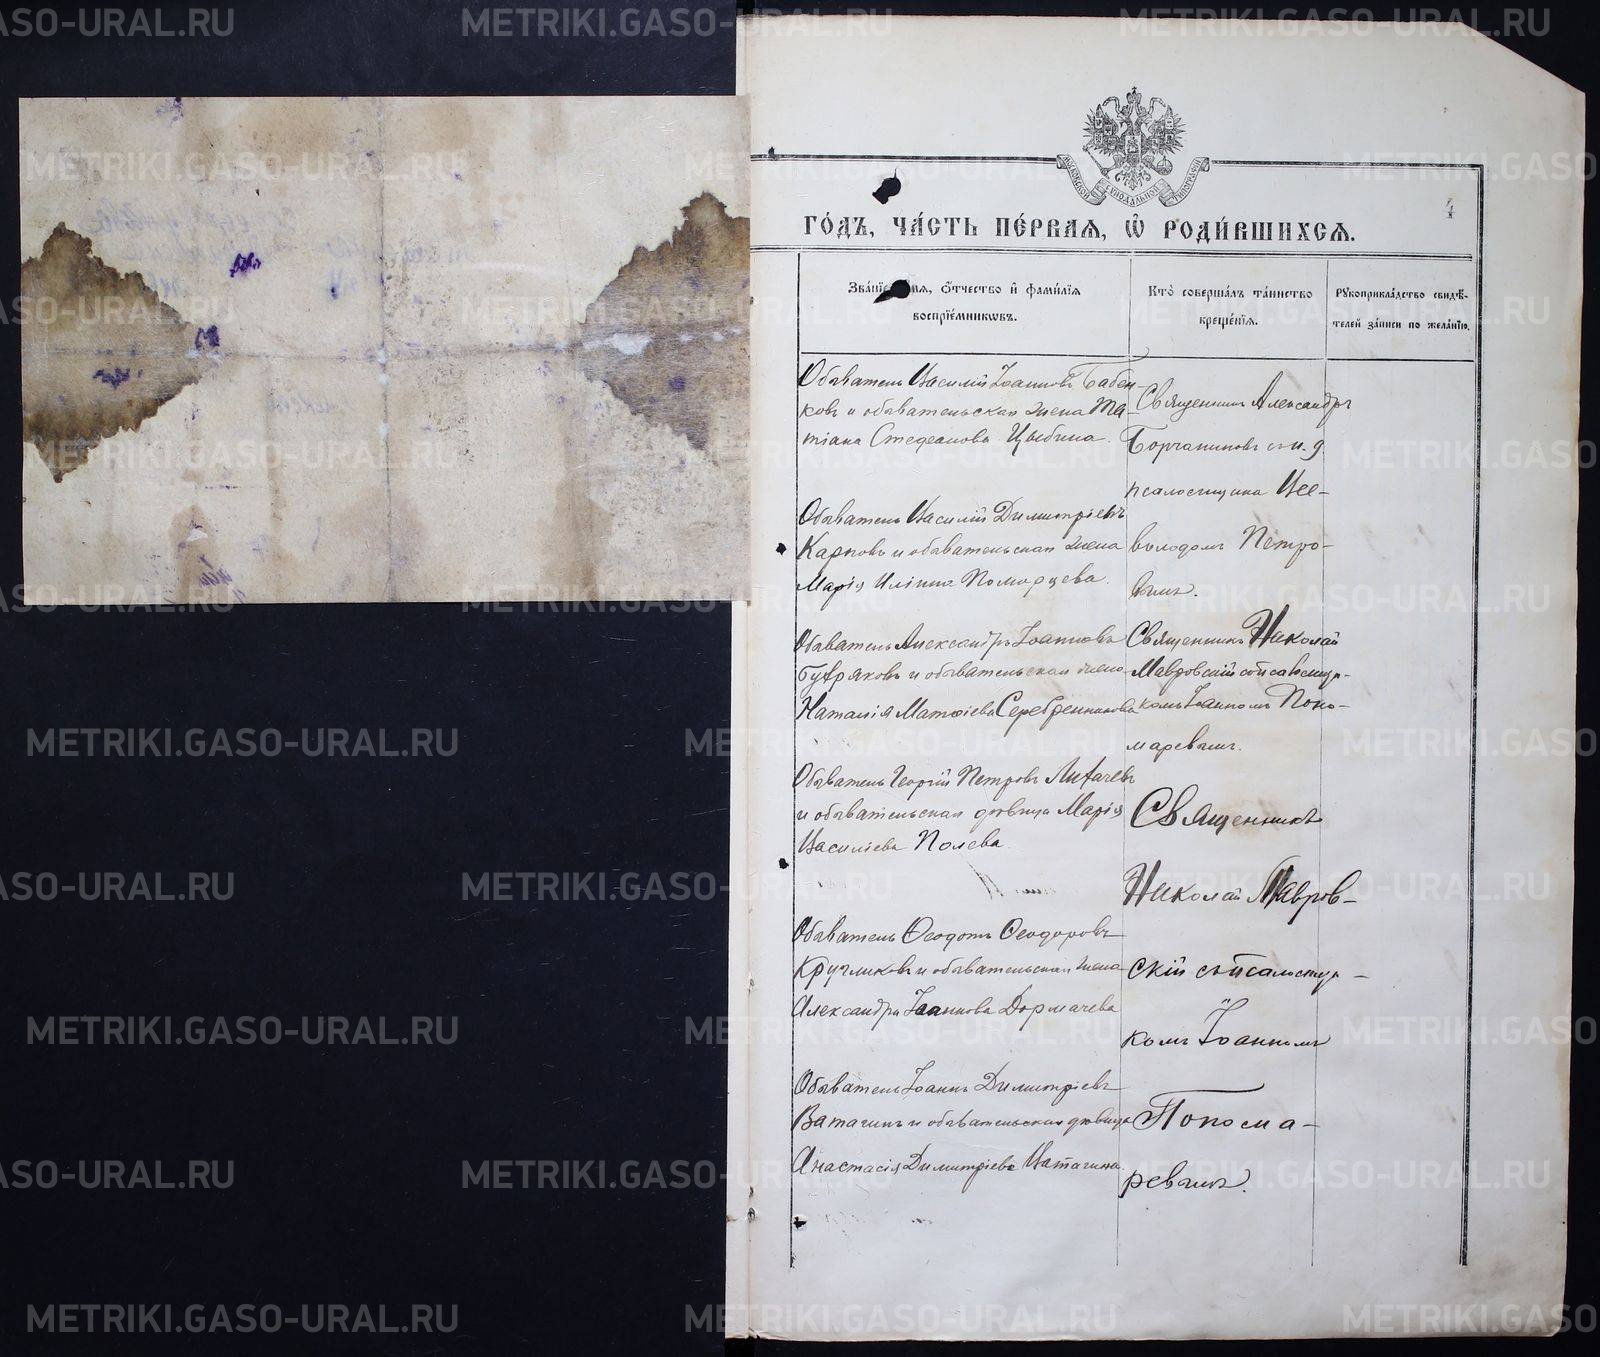 4
МОСКОВСКОЙ СѴНОДАЛЬНОЙ ТИПОГРАФІИ
ГО́ДЪ, ЧА́СТЬ ПЕ́РВАѦ, Ѽ РОДИ́ВШИХСѦ.
Зва́нїе, и́мѧ, Ѻ҆́тчество и҆ фами́лїѧ
воспрїе́мникѡвъ.
Кто̀ соверша́лъ та́инство
креще́нїѧ.
Рꙋкоприкла́дство свидѣ́-
телей за́писи по жела́нїю.
Обыватель Василій Іоанновъ Бабен-
ковъ и обывательская жена Та-
тіана Стефанова Цыбина.
Священникъ Александръ
Борчаниновъ съ и. д.
псаломщика Все-
володомъ Петро-
вымъ.
Обыватель Василій Димитріевъ
Карповъ и обывательская жена
Марія Иліина Поморцева.
Обыватель Александръ Іоанновъ
Бутряковъ и обывательская жена
Наталія Матѳіева Серебренникова
Священникъ Николай
Мавровскій съ псаломщи-
комъ Іоанномъ Поно-
маревымъ.
Обыватель Георгій Петровъ Лихачевъ
и обывательская дѣвица Марія
Василіева Полева.
Священникъ
Николай Мавров-
скій съ псаломщи-
комъ Іоанномъ
Понома-
ревымъ.
Обыватель Ѳеодотъ Ѳеодоровъ
Кругликовъ и обывательская жена
Александра Іоаннова Доргачева
Обыватель Іоаннъ Димитріевъ
Ватагинъ и обывательская дѣвица
Анастасія Димитріева Ватагина.
METRIKI.GASO-URAL.RU